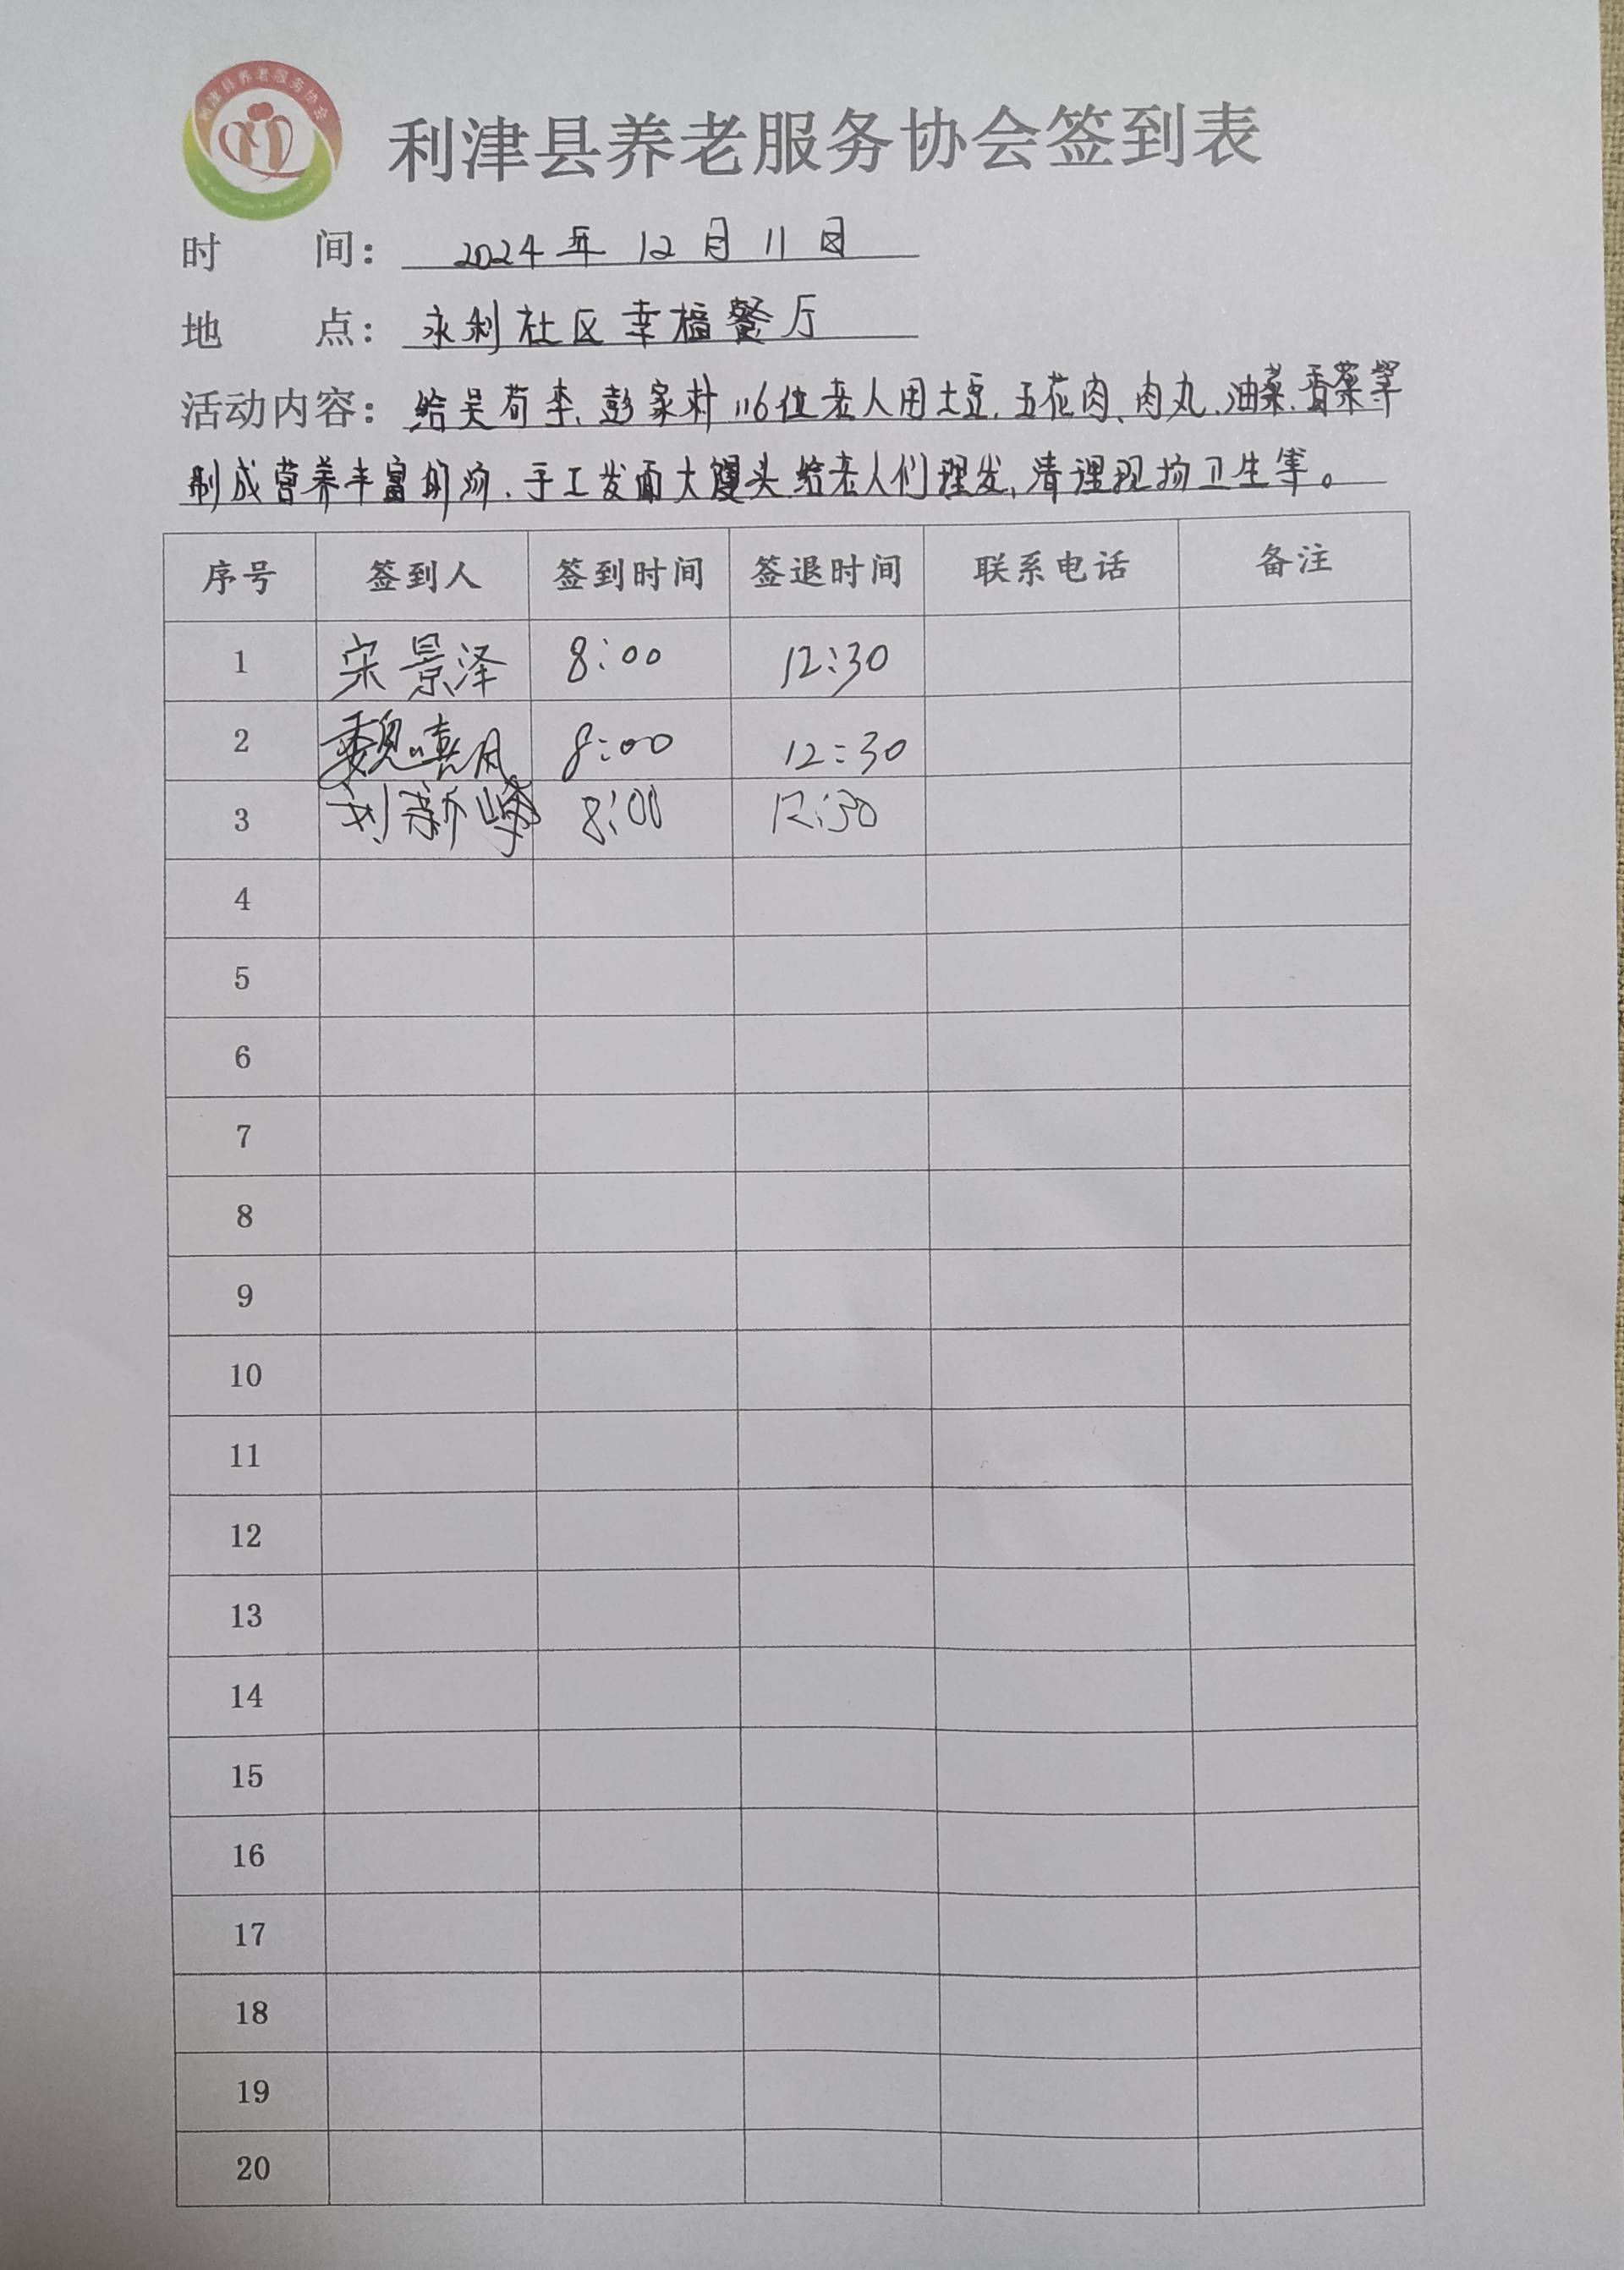 利津县养老服务协会
利津县养老服务协会签到表
时 间： 2024年12月11日
地 点： 永利社区幸福餐厅
活动内容：给吴苟李、彭家村116位老人用土豆、五花肉、肉丸、油菜、香菜等
制成营养丰富的汤、手工发面大馒头给老人们理发，清理现场卫生等。
序号 签到人 签到时间 签退时间 联系电话 备注
1 宋景泽 8:00 12:30
2 魏 8:00 12:30
3 刘新峰 8:00 12:30
4
5
6
7
8
9
10
11
12
13
14
15
16
17
18
19
20